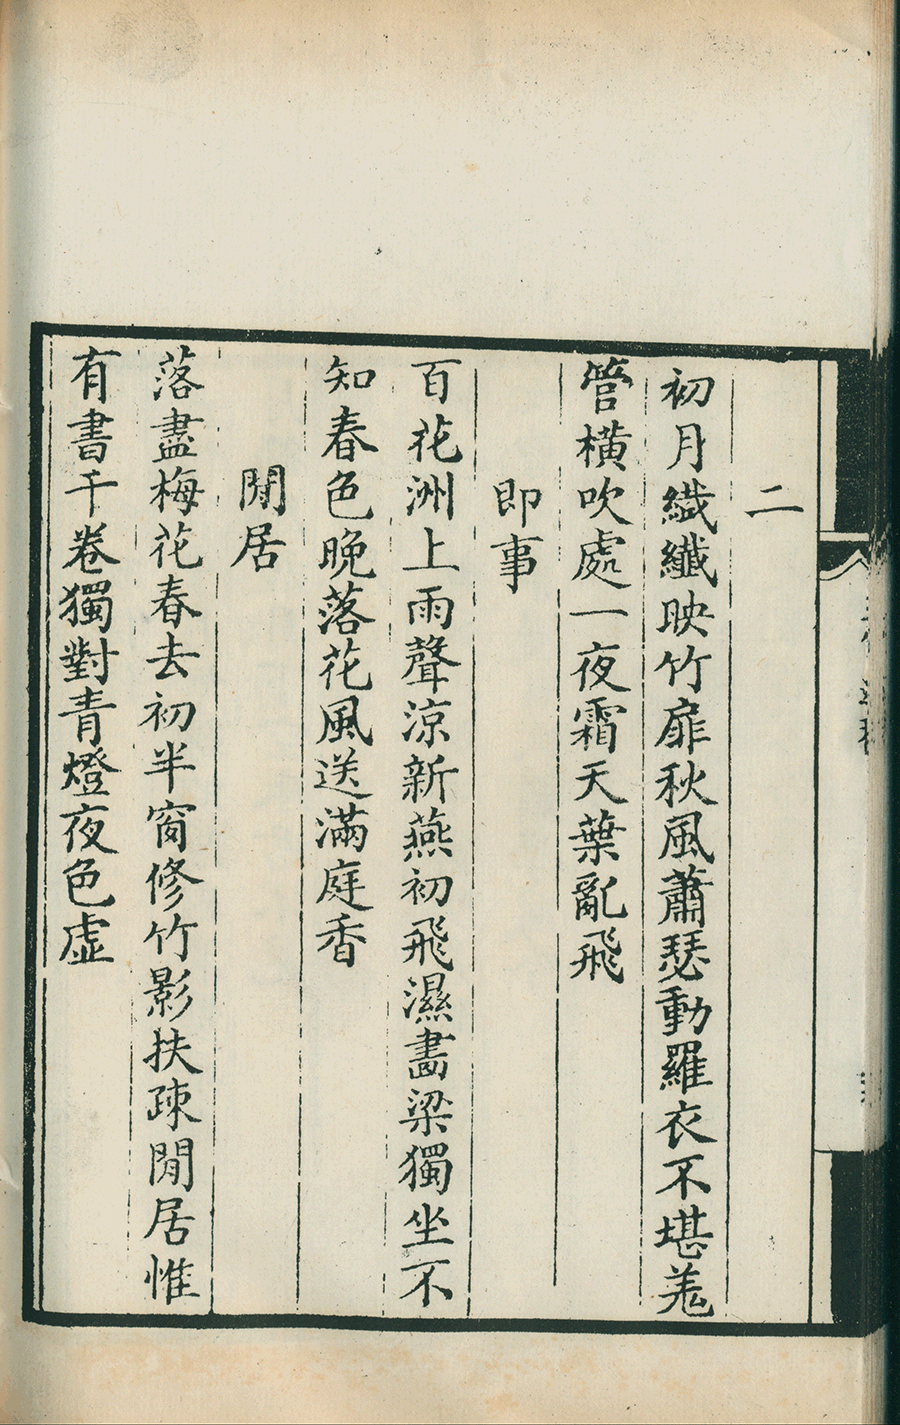 二
初月纎纎映竹扉秋風蕭瑟動羅衣不堪羗
管橫吹處一夜霜天葉亂飛
即事
百花洲上雨聲涼新燕初飛濕畵梁獨坐不
知春色晚落花風送滿庭香
閒居
落盡梅花春去初半窗修竹影扶疎閒居惟
有書千卷獨對青燈夜色虛